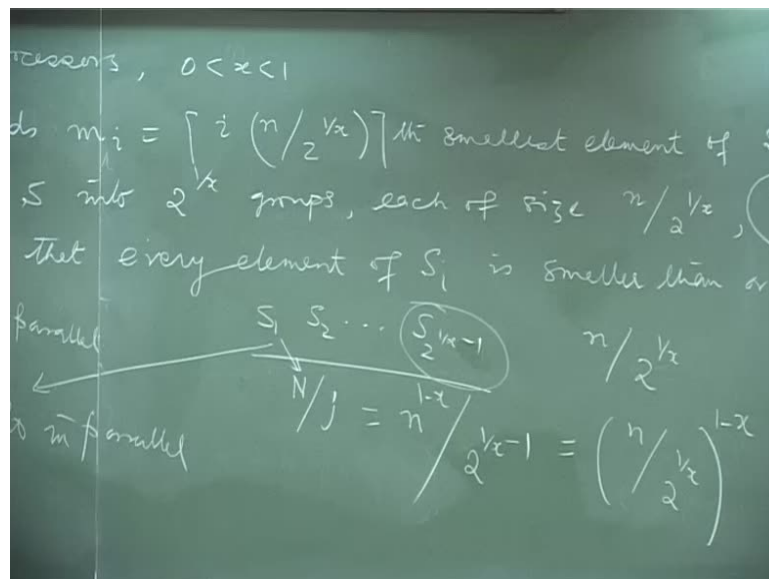 ocessors, 0 < x < 1
ds m_i = ⌈ i (n/2^{1/x}) ⌉ th smallest element of S
, S into 2^{1/x} groups, each of size n/2^{1/x},
that every element of S_i is smaller than or
parallel S_1 S_2 ... S_{2^{1/x}-1} n/2^{1/x}
N/j = n^{1-x} / 2^{1/x-1} = (n/2^{1/x})^{1-x}
to in parallel